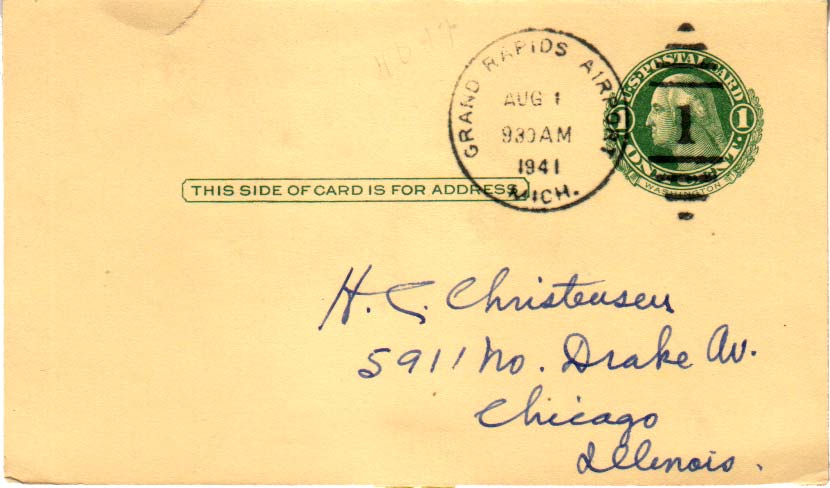 GRAND RAPIDS AIRPORT
AUG 1
930 AM
1941
MICH.
U.S. POSTAL CARD
1 1 1
ONE CENT
WASHINGTON
THIS SIDE OF CARD IS FOR ADDRESS
H. C. Christensen
5911 No. Drake Av.
Chicago
Illinois.